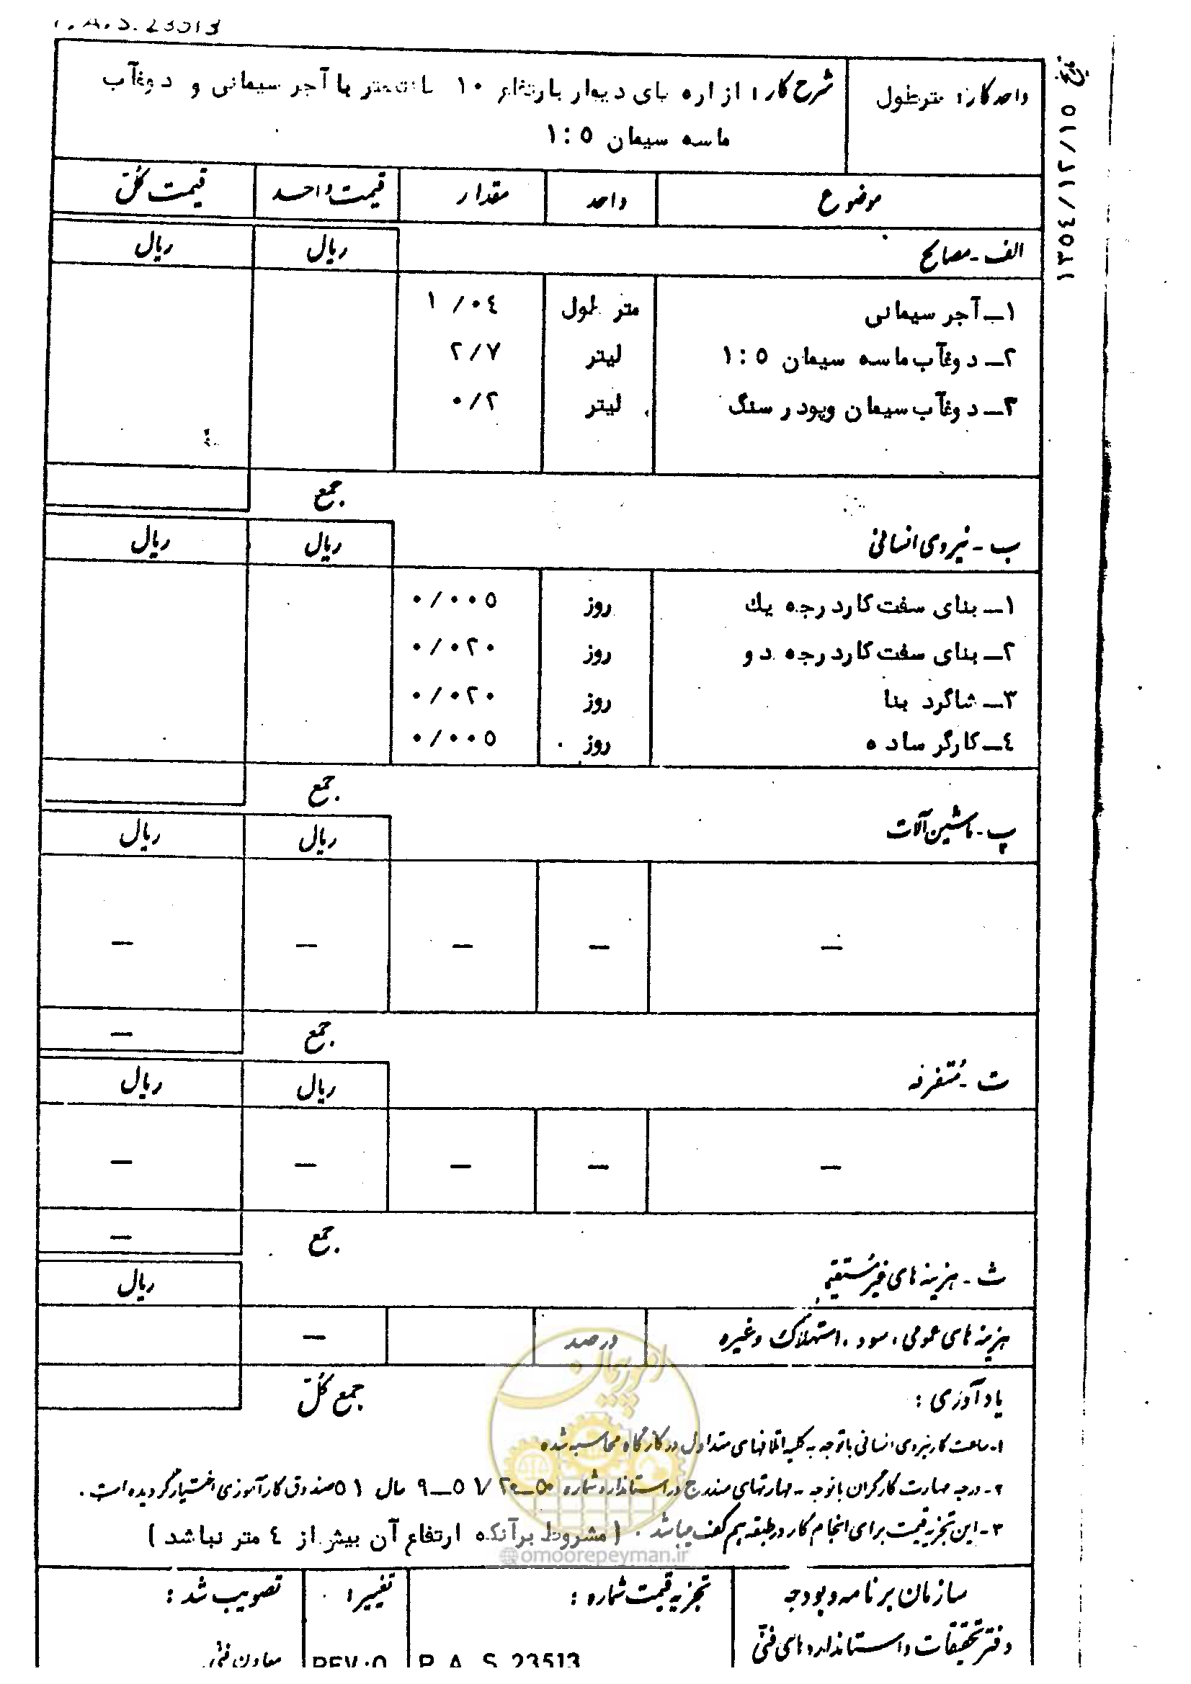 P.A.S. 23513
تاریخ ١٣٥٤/١٢/١٥
واحد کار: مترطول
شرح کار: ازاره بای دیوار بارتفاع ١٠ سانتیمتر با آجر سیمانی و دوغآب
ماسه سیمان ١:٥
موضوع واحد مقدار قیمت واحد قیمت کل
الف - مصالح ریال ریال
١ــ آجر سیمانی متر طول ١/٠٤
٢ــ دوغآب ماسه سیمان ١:٥ لیتر ٢/٧
٣ــ دوغآب سیمان وپودر سنگ لیتر ٠/٢
جمع
ب - نیروی انسانی ریال ریال
١ــ بنای سفت کار درجه یك روز ٠/٠٠٥
٢ــ بنای سفت کار درجه دو روز ٠/٠٢٠
٣ــ شاگرد بنا روز ٠/٠٢٠
٤ــ کارگر ساده روز ٠/٠٠٥
جمع
پ - ماشین آلات ریال ریال
— — — — —
جمع —
ت - متفرقه ریال ریال
— — — — —
جمع —
ث - هزینه های غیرمستقیم ریال
هزینه های عمومی، سود، استهلاک وغیره درصد —
جمع کل
یادآوری:
١- ساعت کار نیروی انسانی با توجه به کلیه اتلافهای متداول در کارگاه محاسبه شده
٢- درجه مهارت کارگران با توجه به مهارتهای مندرج در استاندارد شماره ٥٠ــ٢٠/١ ٥ــ٩ سال ٥١ صندوق کارآموزی اختیار گردیده است.
٣- این تجزیه قیمت برای انجام کار در طبقه هم کف میباشد. (مشروط برآنکه ارتفاع آن بیش از ٤ متر نباشد)
امورپیمان
@omoorepeyman.ir
سازمان برنامه و بودجه
دفتر تحقیقات و استانداردهای فنی
تجزیه قیمت شماره:
P. A. S. 23513
تغییر:
REV.0
تصویب شد:
معاون فنی